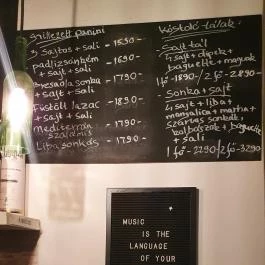 Grillezett panini
3 Sajtos + sali - 1590 -
padlizsánkrém - 1690 -
+ sajt + sali
Bresaola sonka - 1790 -
+ sajt + sali
Füstölt lazac - 1890 -
+ sajt + sali
mediterrán - 1790 -
szalámis
Libasonkás - 1790 -
Kóstoló tálak:
- Sajt tál
sajt + dipek +
baguette + magvak
1 fő - 1890 - / 2 fő - 2890 -
- Sonka + sajt
sajt + liba +
mangalica + marha +
szárított sonkák,
kolbászok, baguette
+ sali
1 fő - 2290 - / 2 fő - 3290
MUSIC
IS THE
LANGUAGE
OF YOUR